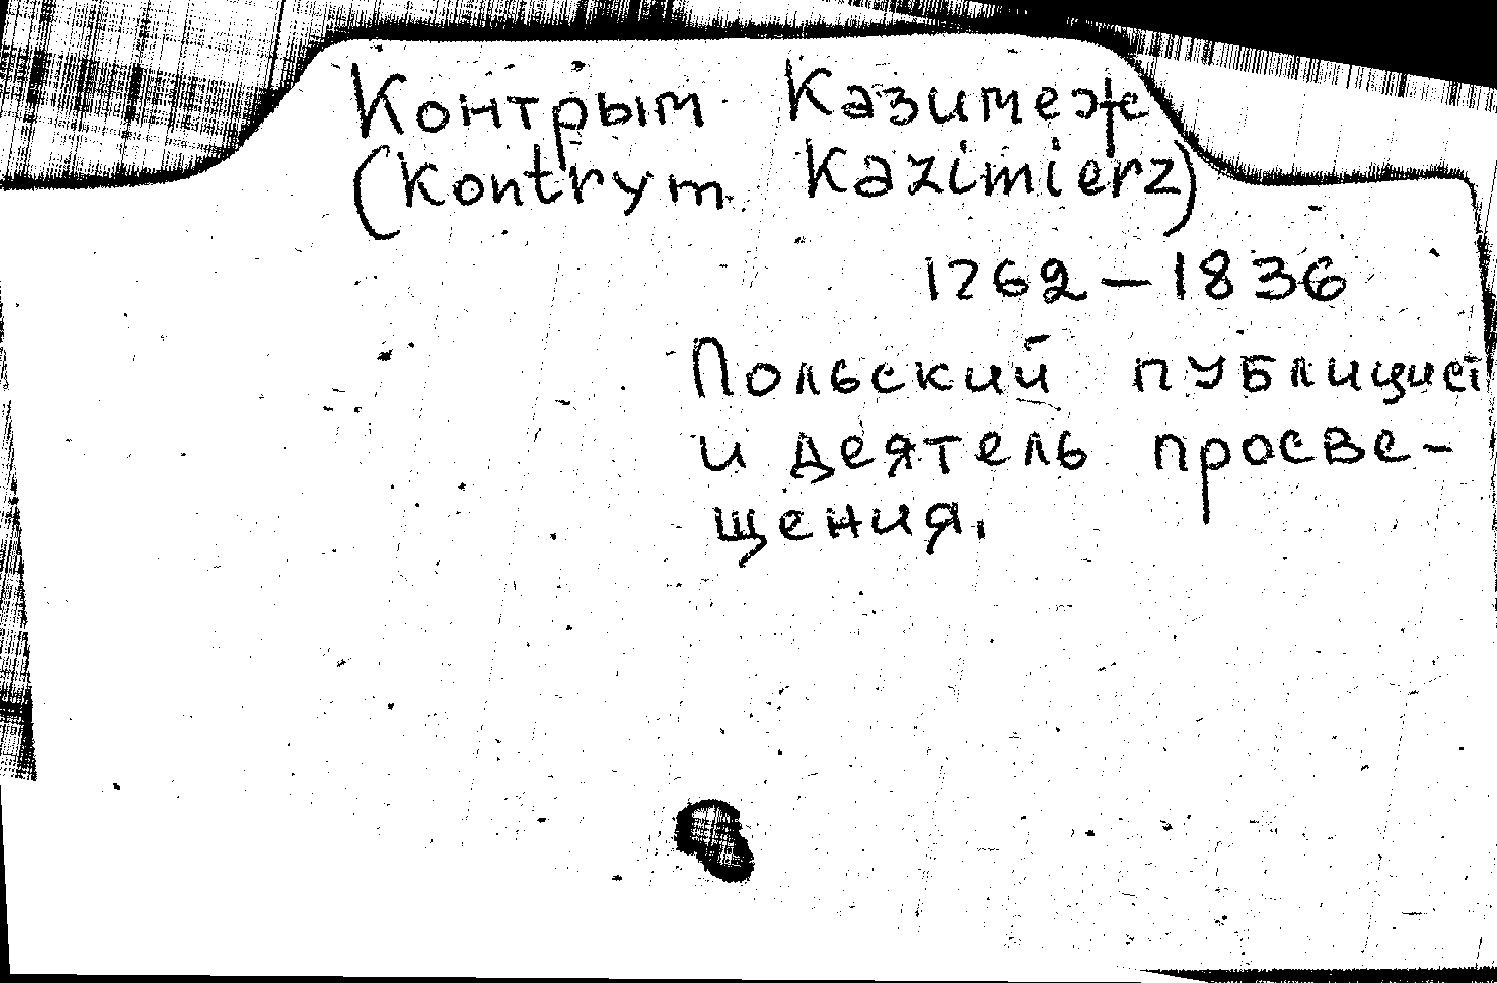 Контрым Казимеж
(Kontrym Kazimierz)
1762 – 1836
Польский публицист
и деятель просве-
щения.